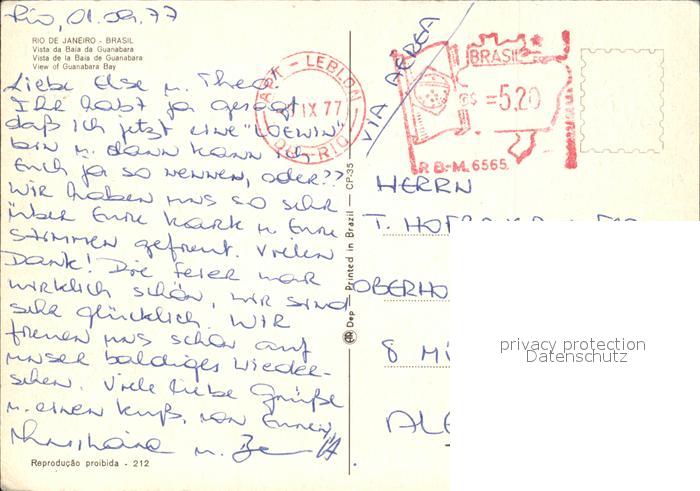 Rio, 01.09.77
RIO DE JANEIRO - BRASIL
Vista da Baía da Guanabara
Vista de la Baía de Guanabara
View of Guanabara Bay
Liebe Else u. Theo!
Ihr habt ja gesagt
daß ich jetzt eine "LOEWIN"
bin u. dann kann ich
Euch ja so nennen, oder??
Wir haben uns so sehr
über Eure Karte u. Eure
Stimmen gefreut. Vielen
Dank! Die Feier war
wirklich schön, wir sind
sehr glücklich. Wir
freuen uns schon auf
unser baldiges Wieder-
sehen. Viele liebe Grüße
u. einen Kuß, von Euren
u.
Reprodução proibida - 212
Dep Printed in Brazil — CP-35
VIA AEREA
LEBLON
IX 77
RIO
BRASIL
=5,20
R B-M. 6565
HERRN
T.
OBERHO
8 MÜ
ALE
privacy protection
Datenschutz